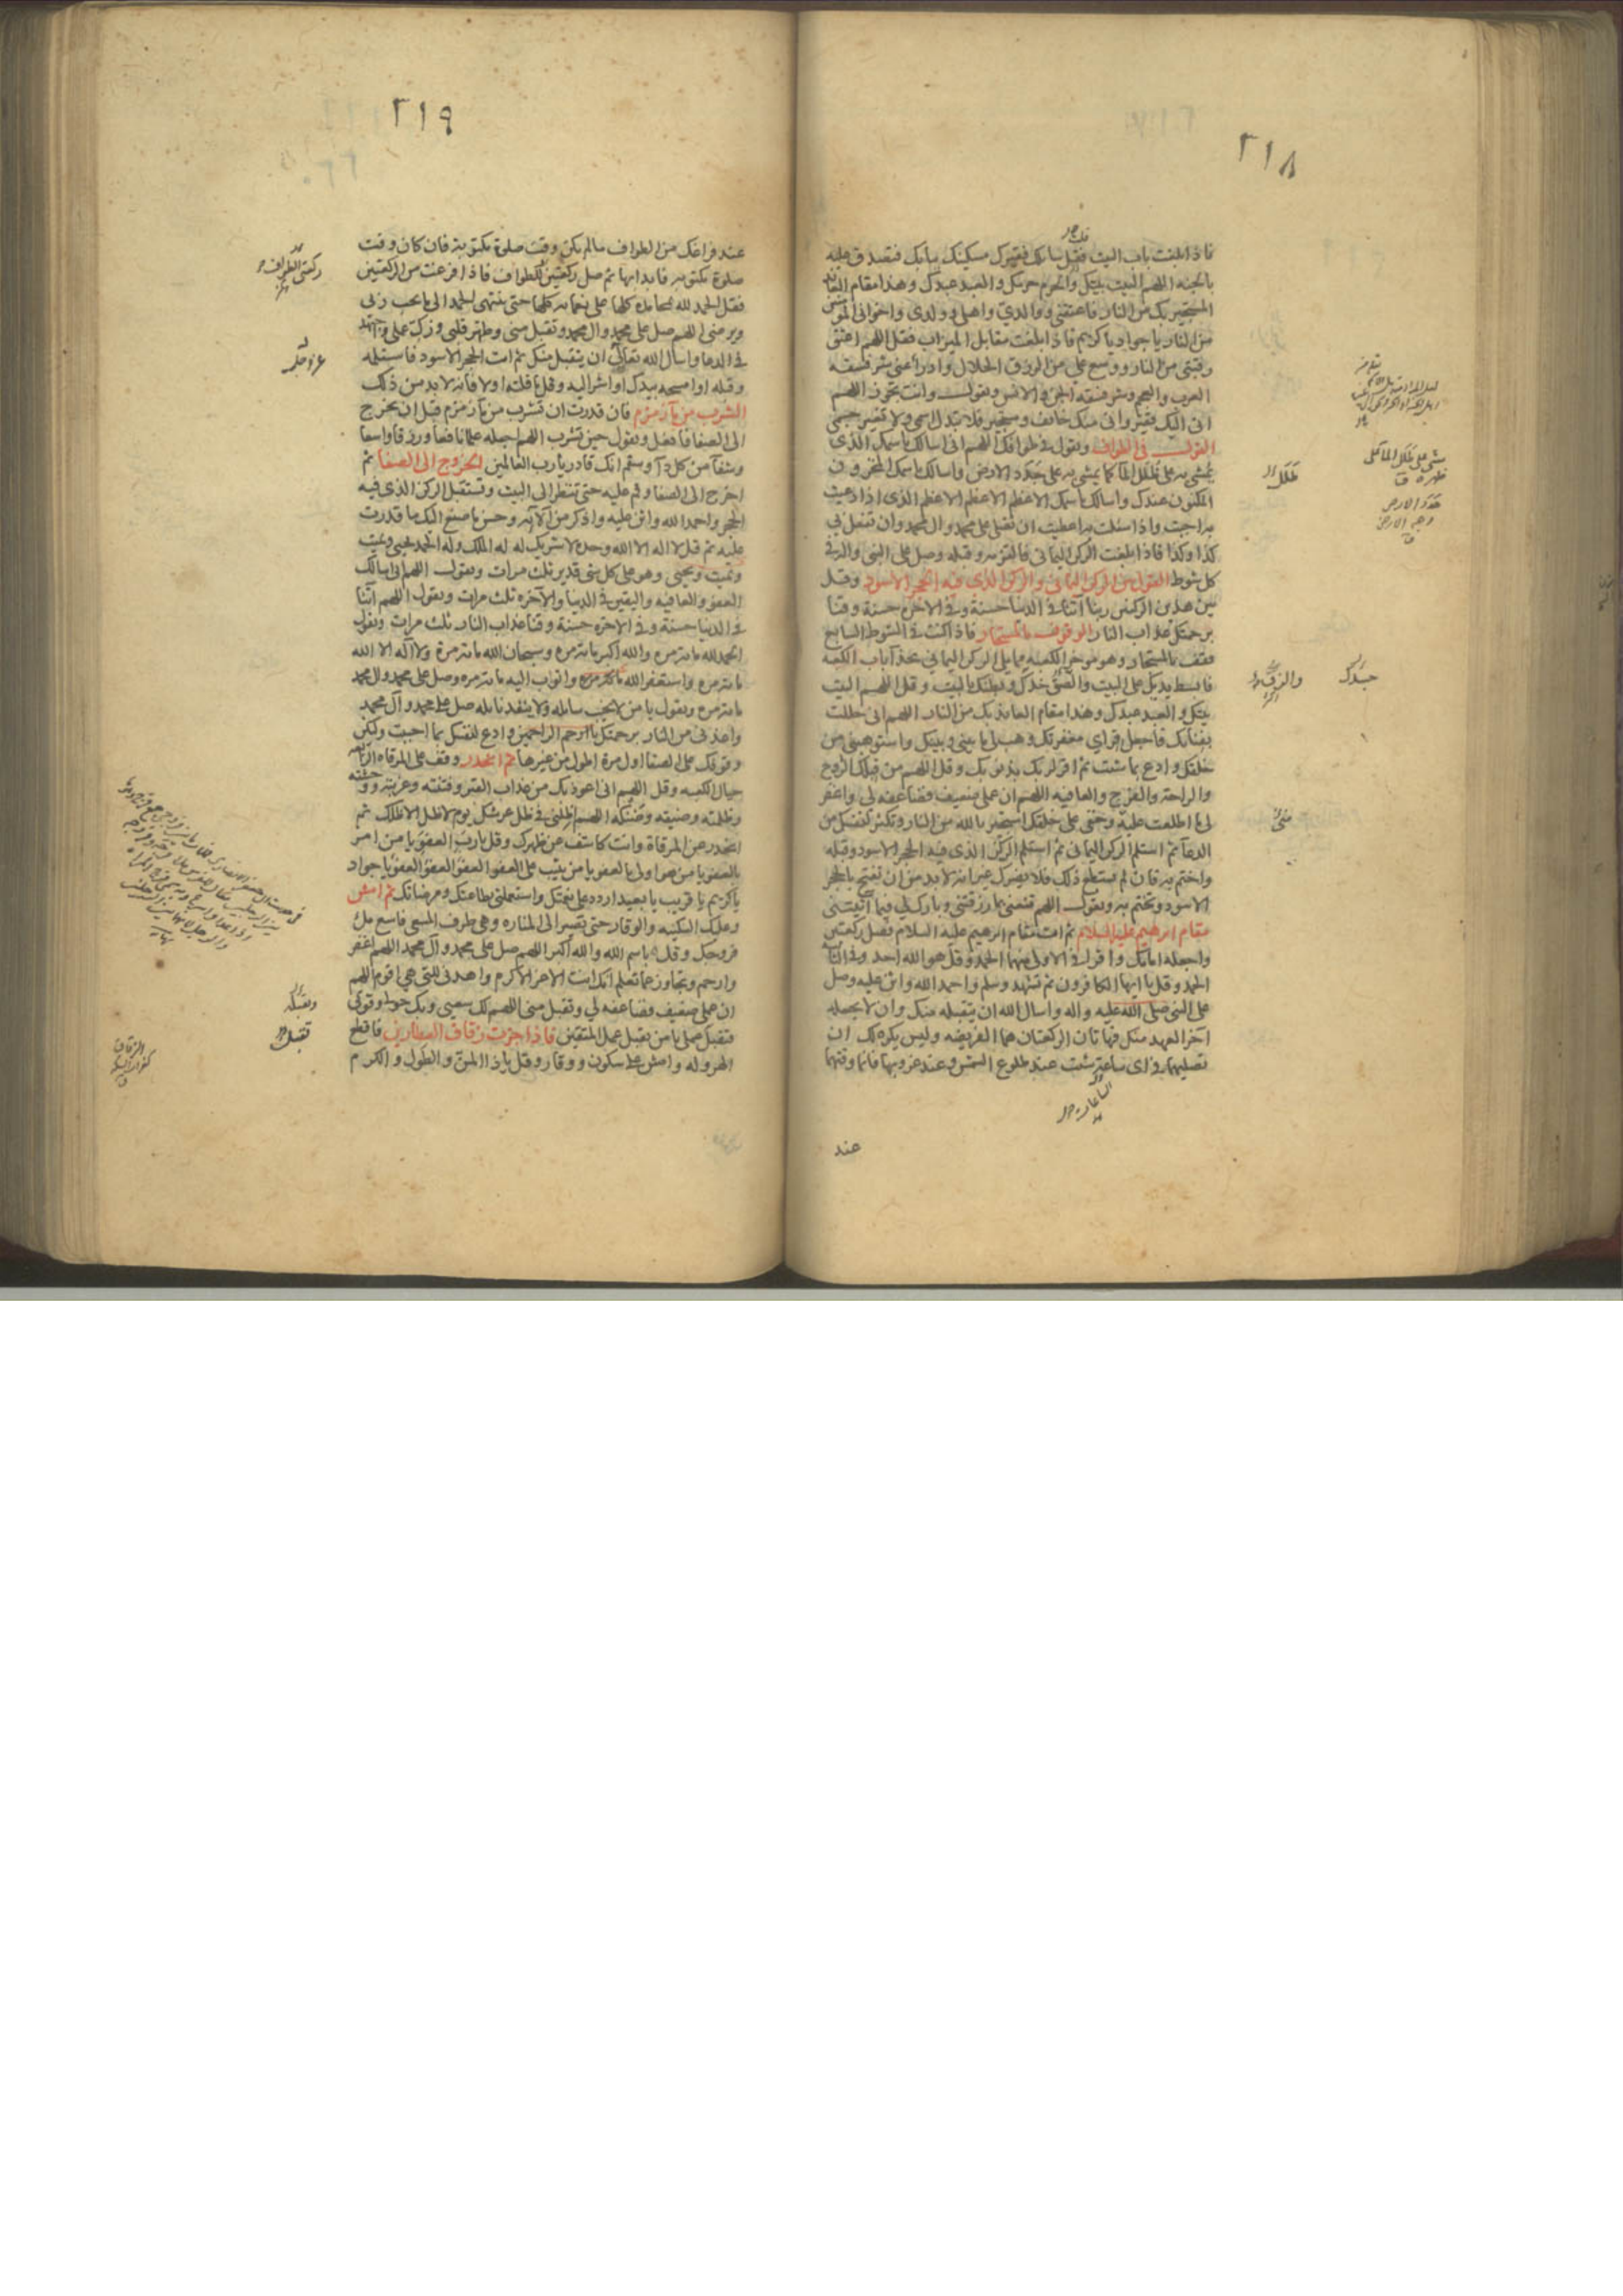 ٢١٨
فاذا بلغت باب البيت فقل سائلك فقيرك مسكينك ببابك فتصدق عليه
بالجنة اللهم البيت بيتك والحرم حرمك والعبد عبدك وهذا مقام العائذ
المستجير بك من النار فاعتقني ووالدي واهلي وولدي واخواني المؤمنين
من النار يا جواد يا كريم فاذا بلغت مقابل الميزاب فقل اللهم اعتق
رقبتي من النار ووسع علي من الرزق الحلال وادرأ عني شر فسقة
العرب والعجم وشر فسقة الجن والانس وتقول وانت تجوز اللهم
اني اليك فقير واني منك خائف ومستجير فلا تبدل اسمي ولا تغير جسمي
القول في الطواف وتقول في طوافك اللهم اني اسألك باسمك الذي
يمشي به على ظلل الماء كما يمشي به على جدد الارض واسالك باسمك المخزون
المكنون عندك واسالك باسمك الاعظم الاعظم الاعظم الذي اذا دعيت
به اجبت واذا سئلت به اعطيت ان تصلي على محمد وال محمد وان تفعل بي
كذا وكذا فاذا بلغت الركن اليماني فالتزمه وقبله وصل على النبي واله في
كل شوط القول بين الركن اليماني والركن الذي فيه الحجر الاسود وقل
بين هذين الركنين ربنا آتنا في الدنيا حسنة وفي الاخرة حسنة وقنا
برحمتك عذاب النار الوقوف بالمستجار فاذا كنت في الشوط السابع
فقف بالمستجار وهو مؤخر الكعبة مما يلي الركن اليماني بحذاء باب الكعبة
فابسط يديك على البيت والصق خدك وبطنك بالبيت وقل اللهم البيت
بيتك والعبد عبدك وهذا مقام العائذ بك من النار اللهم اني حللت
بفنائك فاجعل قراي مغفرتك وهب لي ما بيني وبينك واستوهبني من
خلقك وادع بما شئت ثم اقر لربك بذنوبك وقل اللهم من قبلك الروح
والراحة والفرج والعافية اللهم ان عملي ضعيف فضاعفه لي واغفر
لي ما اطلعت عليه وخفي على خلقك استجير بالله من النار وتكثر لنفسك من
الدعاء ثم استلم الركن اليماني ثم استلم الركن الذي فيه الحجر الاسود وقبله
واختم به فان لم تستطع ذلك فلا يضرك غير انه لابد من ان تفتح بالحجر
الاسود وتختم به وتقول اللهم قنعني بما رزقتني وبارك لي فيما آتيتني
مقام ابرهيم عليه السلام ثم ائت مقام ابرهيم عليه السلام فصل ركعتين
واجعله امامك واقرا في الاولى منهما الحمد وقل هو الله احد وفي الثانية
الحمد وقل يا ايها الكافرون ثم تشهد وسلم واحمد الله واثن عليه وصل
على النبي صلى الله عليه واله واسال الله ان يتقبله منك وان لا يجعله
آخر العهد منك فهاتان الركعتان هما الفريضة وليس يكره لك ان
تصليهما في اى ساعة شئت عند طلوع الشمس وعند غروبها فانما وقتهما
عند
جسدك
ظلل
٢١٩
عند فراغك من الطواف ما لم يكن وقت صلوة مكتوبة فان كان وقت
صلوة مكتوبه فابدا بها ثم صل ركعتين للطواف فاذا فرغت من الركعتين
فقل الحمد لله بمحامده كلها على نعمائه كلها حتى ينتهي الحمد الى ما يحب ربي
ويرضى اللهم صل على محمد وال محمد وتقبل مني وطهر قلبي وزك عملي واجتهد
في الدعاء واسال الله تعالى ان يتقبل منك ثم ائت الحجر الاسود فاستلمه
وقبله او امسحه بيدك او اشر اليه وقل ما قلته اولا فانه لابد من ذلك
الشرب من ماء زمزم فان قدرت ان تشرب من ماء زمزم قبل ان تخرج
الى الصفا فافعل وتقول حين تشرب اللهم اجعله علما نافعا ورزقا واسعا
وشفآء من كل داء وسقم انك قادر يا رب العالمين الخروج الى الصفا ثم
اخرج الى الصفا وقم عليه حتى تنظر الى البيت وتستقبل الركن الذي فيه
الحجر واحمد الله واثن عليه واذكر من آلائه وحسن ما صنع اليك ما قدرت
عليه ثم قل لا اله الا الله وحده لا شريك له له الملك وله الحمد يحيي ويميت
ويميت ويحيي وهو على كل شئ قدير ثلث مرات وتقول اللهم اني اسالك
العفو والعافية واليقين في الدنيا والآخرة ثلث مرات وتقول اللهم آتنا
في الدنيا حسنة وفي الاخرة حسنة وقنا عذاب النار ثلث مرات وتقول
الحمد لله مائة مرة والله اكبر مائة مرة وسبحان الله مائة مرة ولا اله الا الله
مائة مرة واستغفر الله مائة مرة واتوب اليه مائة مرة وصل على محمد وال محمد
مائة مرة وتقول يا من لا يخيب سائله ولا ينفد نائله صل على محمد وآل محمد
واعذني من النار برحمتك يا ارحم الراحمين وادع لنفسك بما احببت وليكن
وقوفك على الصفا اول مرة اطول من غيرها ثم انحدر وقف على المرقاة الرابعة
حيال الكعبة وقل اللهم اني اعوذ بك من عذاب القبر وفتنته وغربته ووحشته
وظلمته وضيقه وضنكه اللهم اظلني في ظل عرشك يوم لا ظل الا ظلك ثم
انحدر عن المرقاة وانت كاشف عن ظهرك وقل يا رب العفو يا من امر
بالعفو يا من هو اولى بالعفو يا من يثيب على العفو العفو العفو العفو يا جواد
يا كريم يا قريب يا بعيد اردد علي نعمتك واستعملني بطاعتك ومرضاتك ثم امش
وعليك السكينه والوقار حتى تصير الى المناره وهي طرف المسعى فاسع ملأ
فروجك وقل باسم الله والله اكبر اللهم صل على محمد وآل محمد اللهم اغفر
وارحم وتجاوز عما تعلم انك انت الاعز الاكرم واهدني للتي هي اقوم اللهم
ان عملي ضعيف فضاعفه لي وتقبل مني اللهم لك سعيي وبك حولي وقوتي
فتقبل عملي يا من يقبل عمل المتقين فاذا جزت زقاق العطارين فاقطع
الهروله وامش على سكون ووقار وقل يا ذا المن والطول والكرم
عز وجل
تقبل